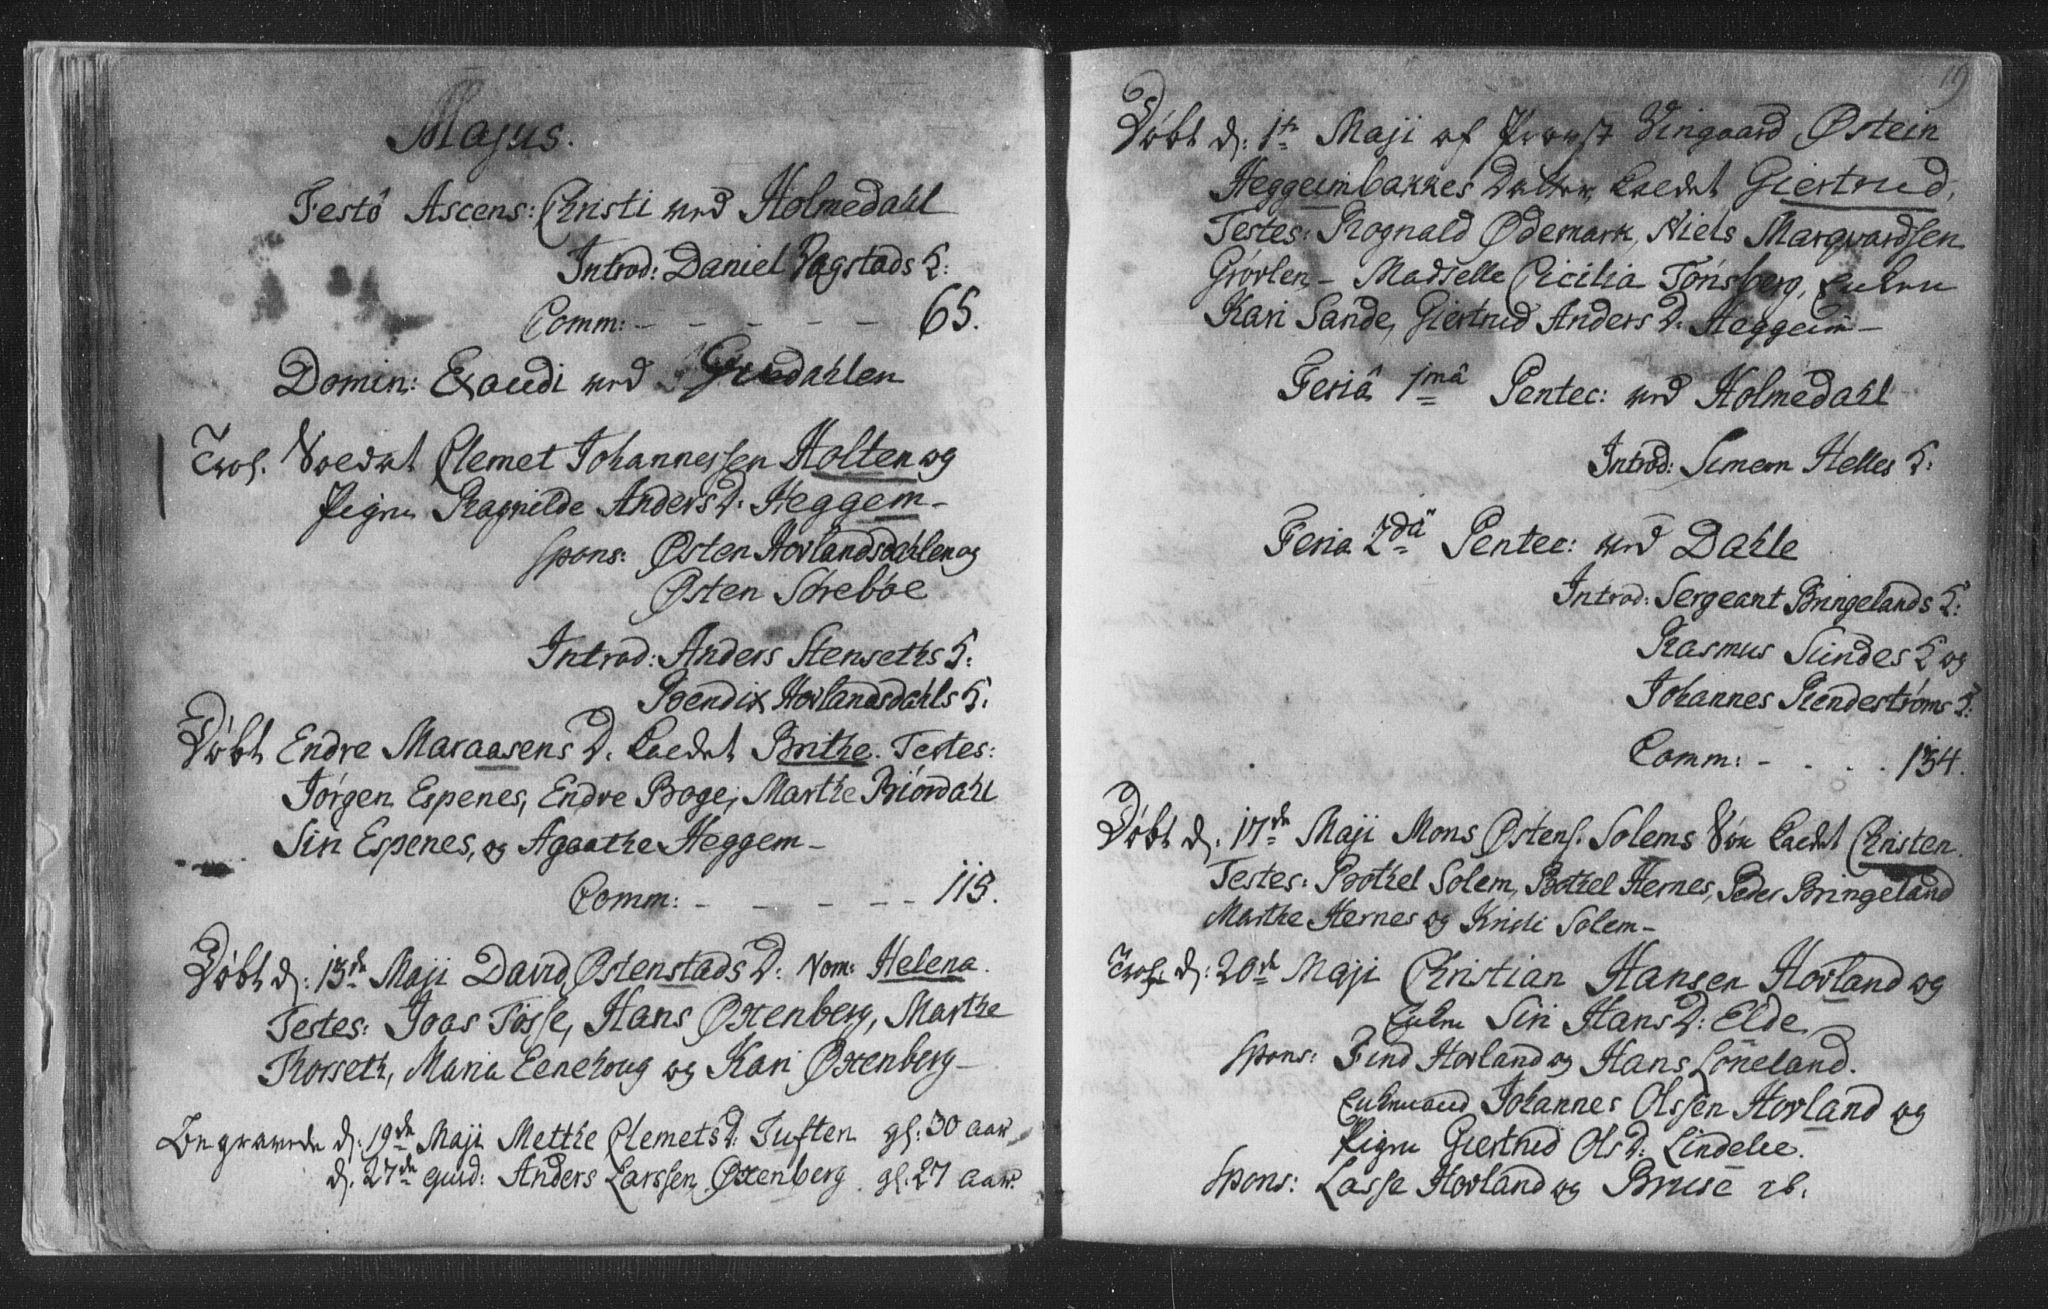 Majus.
Festô Ascens: Christi ved Holmedahl
Introd: Daniel Vagstads K:
Comm: - - - - - 65.
Domin: Exaudi ved Giedahlen
Trol. Clemet Johannessen Holten og
Pigen Ragnilde Anders D. Heggem-
Spons: Østen Hovlandsdahlen og
Østen Sørebøe
Introd: Anders Stenseths K:
Bendix Hovlandsdahls K:
Døbt Endre Maraasens D. kaldet Brithe. Testes:
Jørgen Espenes, Endre Boge, Marthe Biórdahl
Siri Espenes, og Agaathe Heggem-
Comm: - - - - - 115.
Døbt d: 13de Maji David Østenstads D: Nom: Helena.
Testes: Joas Tøsse, Hans Oxenberg, Marthe
Thorseth, Maria Eenehoug og Kari Oxenberg-
Begravede d: 19de Maji Metthe Clemets D: Tuften gl: 30 aar
d. 27de ejusd: Anders Larssen Oxenberg gl. 27 aar.
119
Døbt d: 1te Maji af Provst Vingaard Østein
Heggeimbakkes Datter kaldet Giertrud,
Testes: Rognald Ødemark, Niels Marqvardsen
Grøvlen - Madselle Cicilia Tønsberg, Enken
Kari Sande, Giertrud Anders D. Heggeim-
Feriâ 1mâ Pentec: ved Holmedahl
Introd: Simon Helles K:
Feria 2dâ Pentec: ved Dahle
Introd: Sergeant Bringelands K:
Rasmus Sundes K og
Johannes Rendestrøms K:
Comm: - . . . 134.
Døbt d. 17de Maji Mons Østens. Solems Søn kaldet Christen.
Testes: Bothel Solem, Bothel Hernes, Peder Bringeland
Marthe Hernes og Kristi Solem-
Trol. d: 20de Maji Christian Hansen Hovland og
Enken Siri Hans D: Elde,
Spons: Find Hovland og Hans Løneland.
Enkemand Johannes Olssen Hovland og
Pigen Giertrud Ols D: Lindelie.
Spons: Lasse Hovland og Bruse ib.